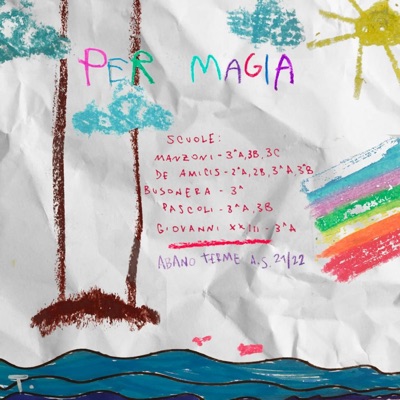 PER MAGIA
SCUOLE:
MANZONI - 3^A, 3B, 3C
DE AMICIS - 2^A, 2B, 3^A, 3^B
BUSONERA - 3^A
PASCOLI - 3^A, 3B
GIOVANNI XXIII - 3^A
ABANO TERME A.S. 21/22
T.